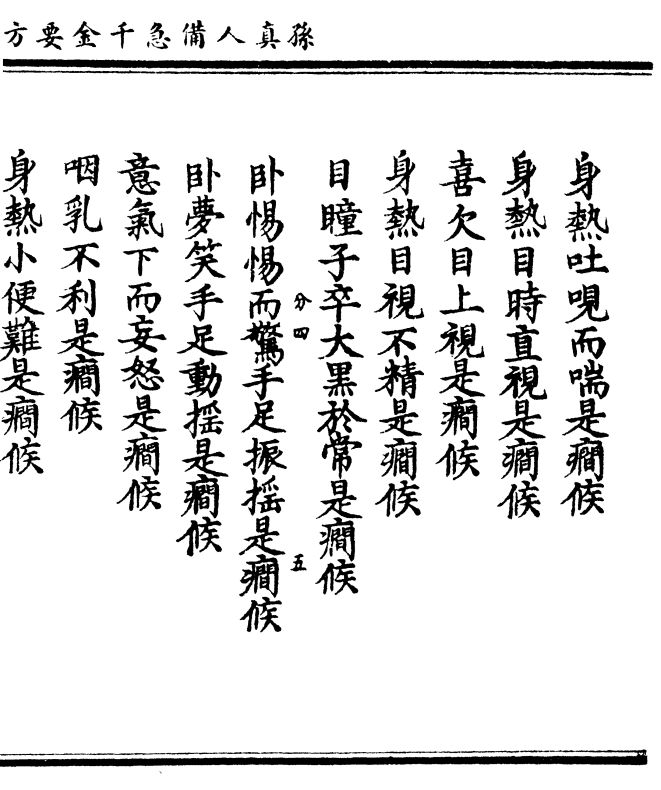 孫真人備急千金要方
身熱吐哯而喘是癇候
身熱目時直視是癇候
喜欠目上視是癇候
身熱目視不精是癇候
目瞳子卒大黑於常是癇候
分四
五
卧惕惕而驚手足振摇是癇候
卧夢笑手足動摇是癇候
意氣下而妄怒是癇候
咽乳不利是癇候
身熱小便難是癇候